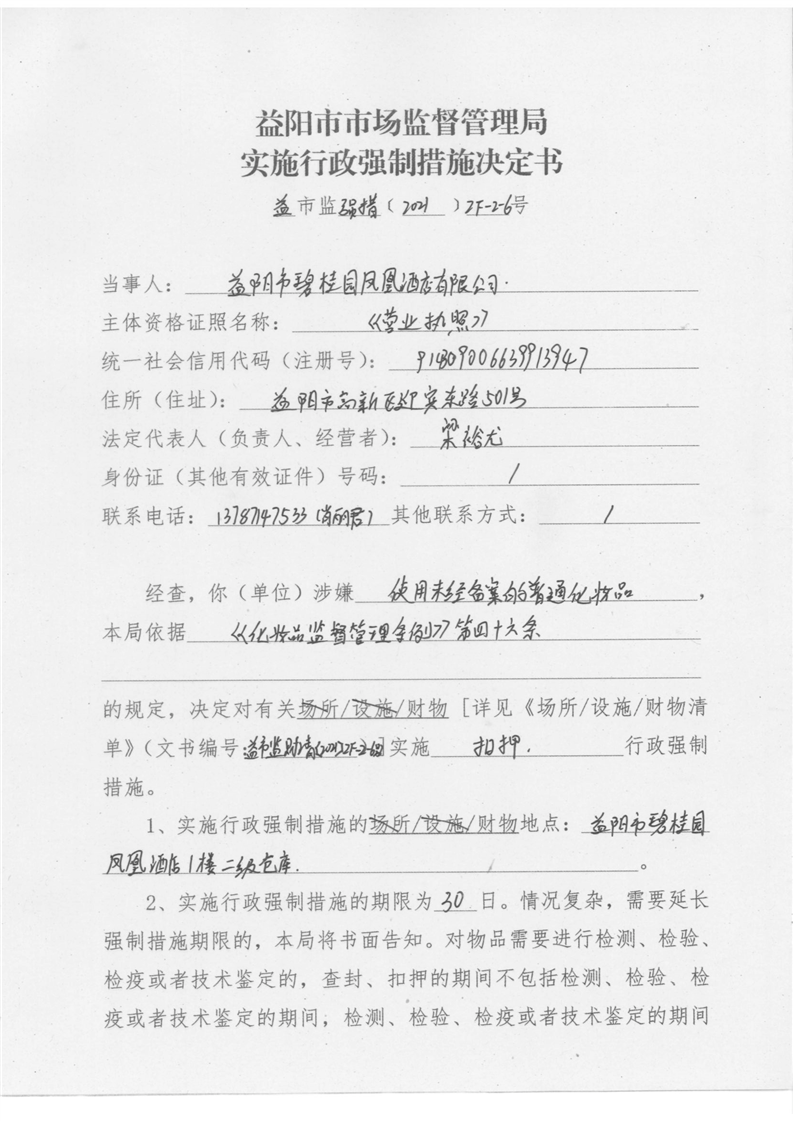 益阳市市场监督管理局
实施行政强制措施决定书
益市监强措（2021）ZF-2-6号
当事人：益阳市碧桂园凤凰酒店有限公司.
主体资格证照名称：《营业执照》
统一社会信用代码（注册号）：914309006639913947
住所（住址）：益阳市高新区迎宾东路501号
法定代表人（负责人、经营者）：梁裕尤
身份证（其他有效证件）号码：/
联系电话：13787147533（肖丽君）其他联系方式：/
经查，你（单位）涉嫌 使用未经备案的普通化妆品，
本局依据 《化妆品监督管理条例》第四十六条
的规定，决定对有关场所/设施/财物 [详见《场所/设施/财物清
单》（文书编号 益市监 ]实施 扣押. 行政强制
措施。
1、实施行政强制措施的场所/设施/财物地点：益阳市碧桂园
凤凰酒店1楼二级仓库.。
2、实施行政强制措施的期限为30日。情况复杂，需要延长
强制措施期限的，本局将书面告知。对物品需要进行检测、检验、
检疫或者技术鉴定的，查封、扣押的期间不包括检测、检验、检
疫或者技术鉴定的期间，检测、检验、检疫或者技术鉴定的期间